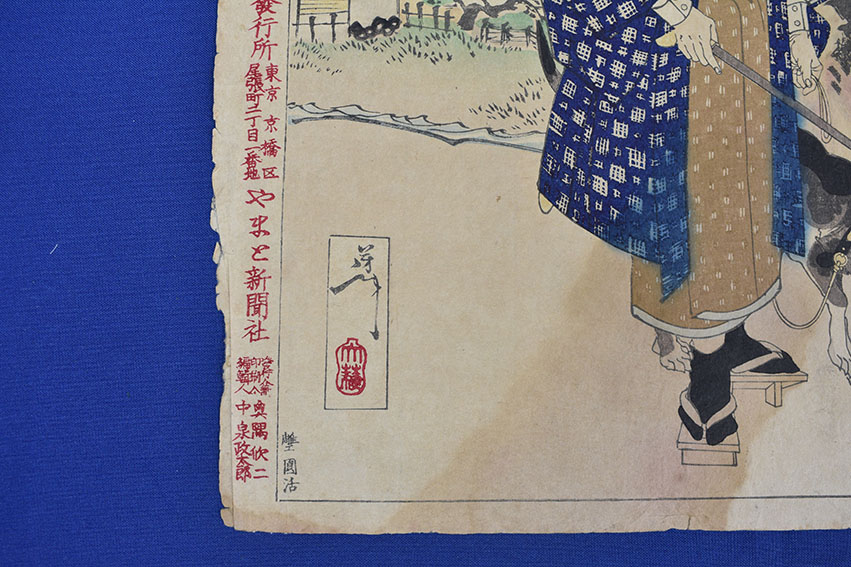 發行所
東京京橋区
尾張町二丁目一番地
やまと新聞社
印刷人 奥隅欣二
編輯人 中泉政太郎
芳年
大蘇
圓活